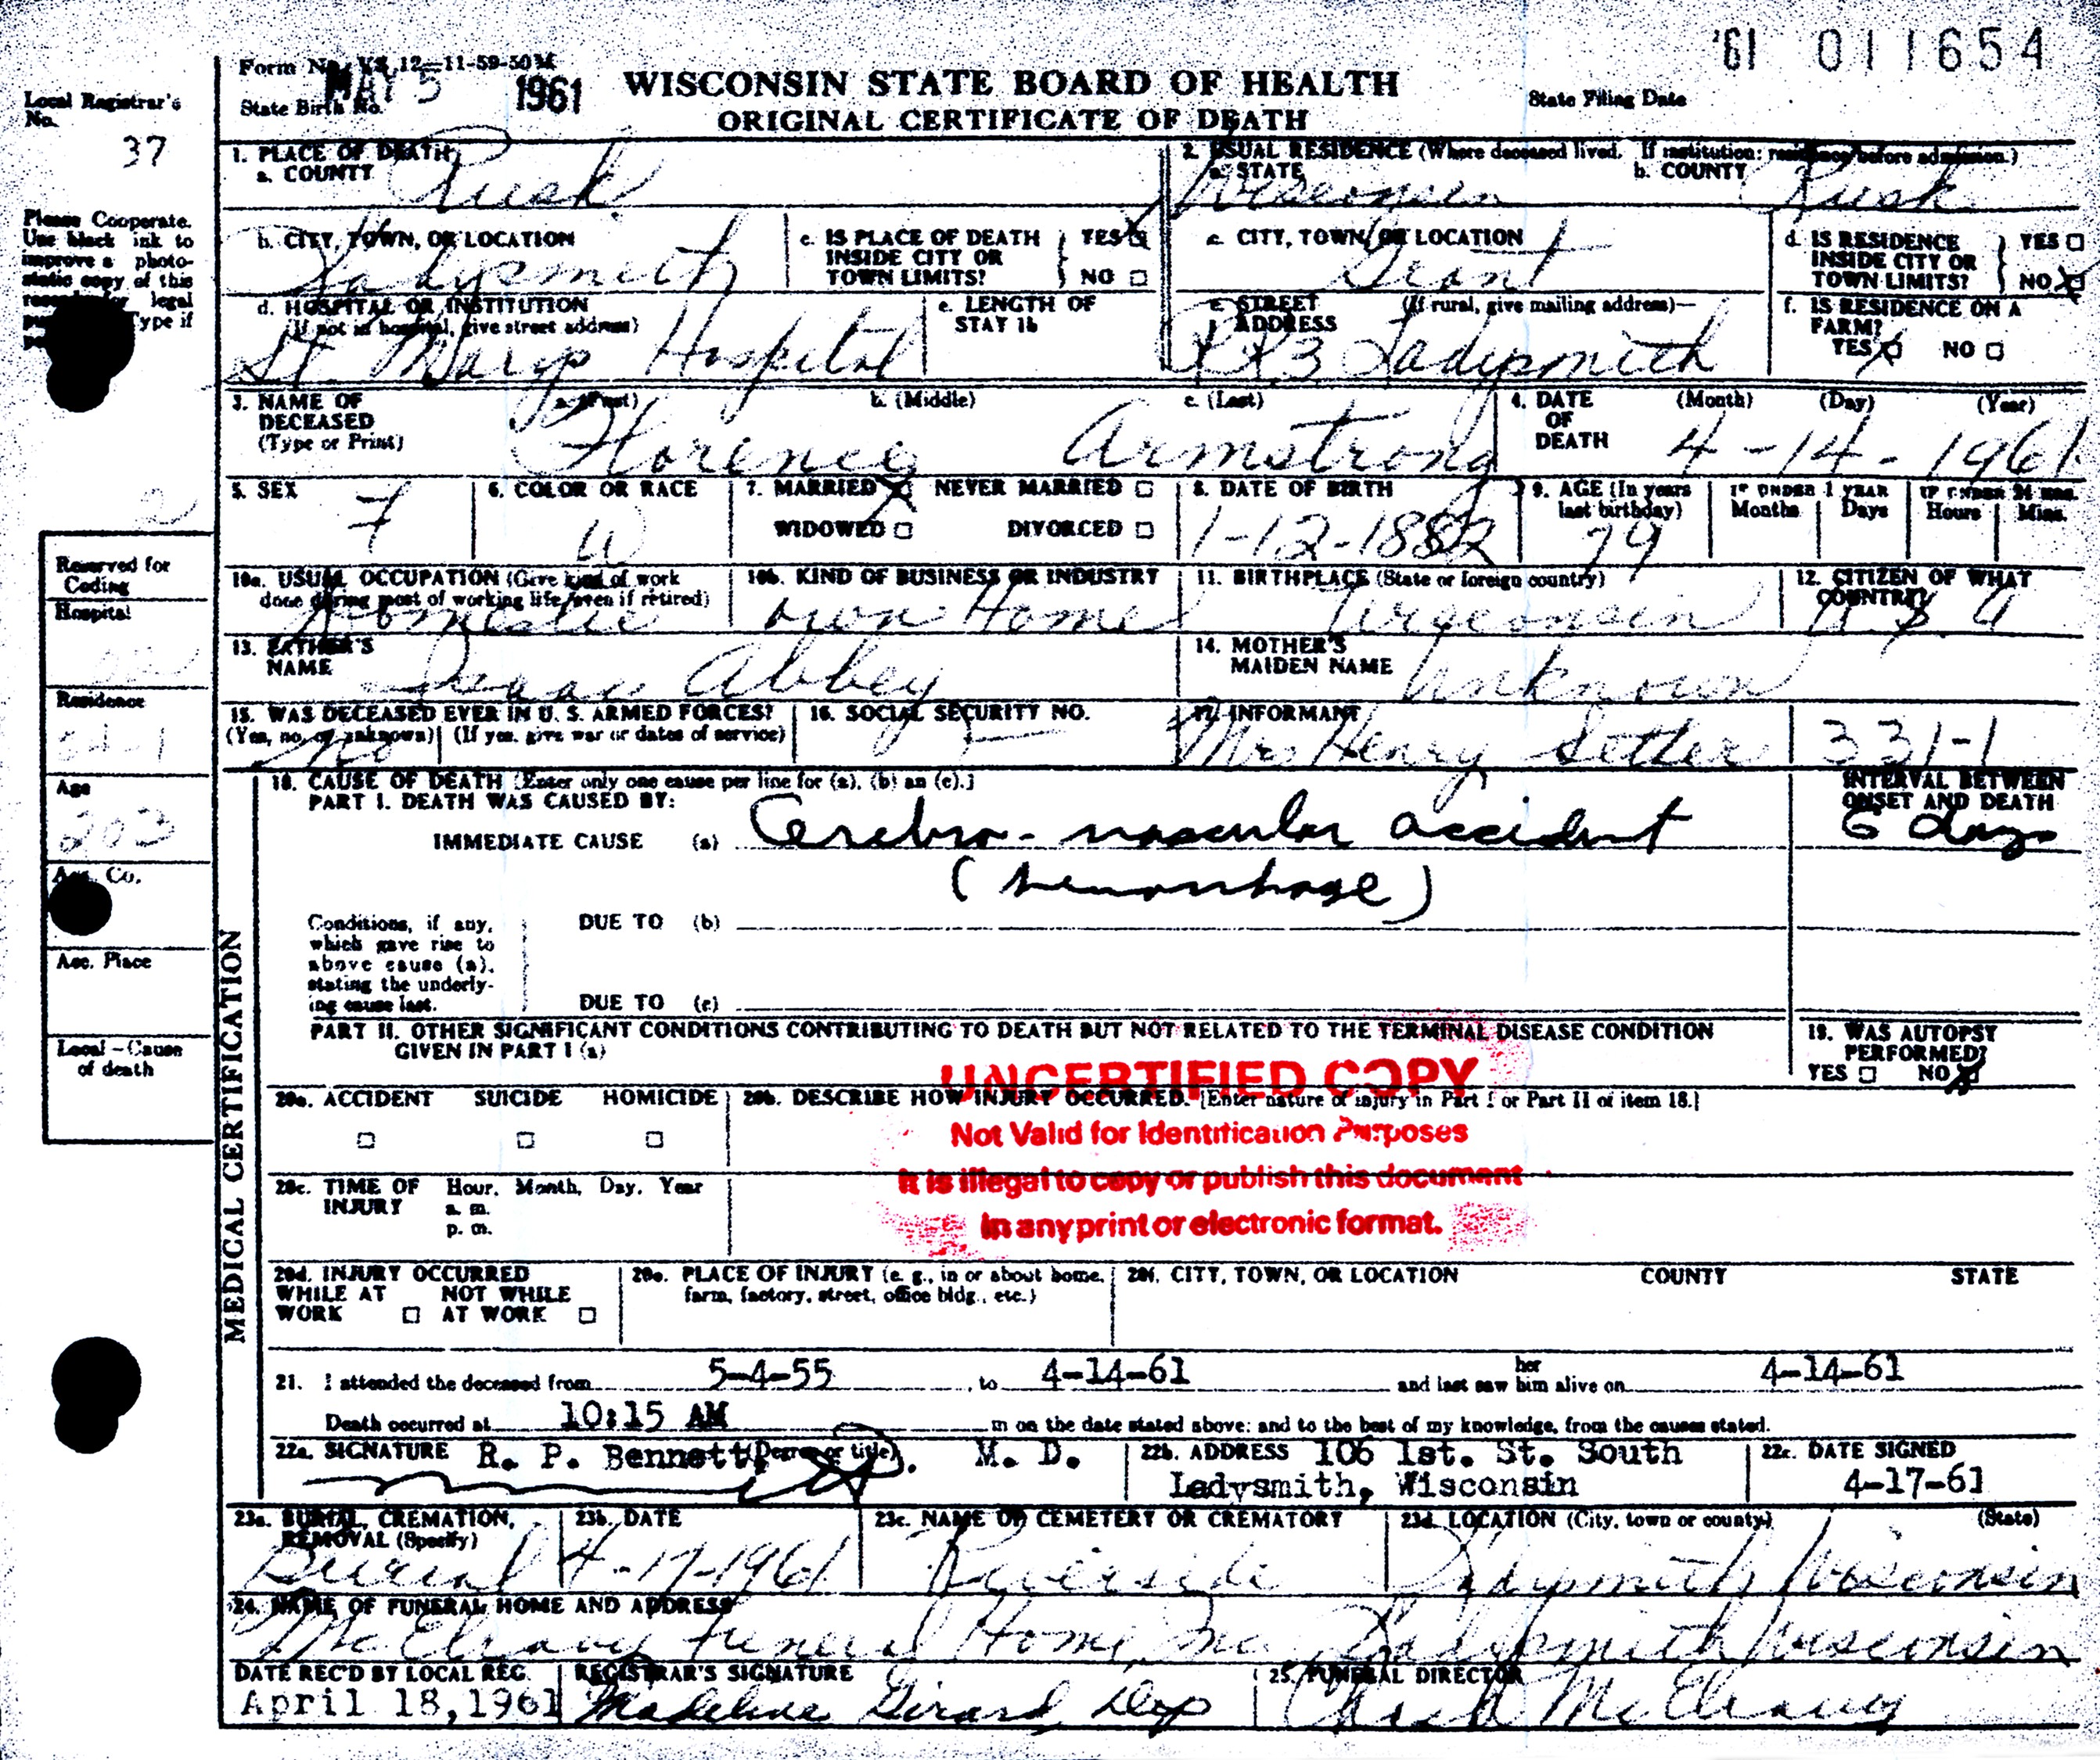 '61 011654
Form No. VS 12—11-59-50M
MAY 5 1961
State Birth No.
WISCONSIN STATE BOARD OF HEALTH
ORIGINAL CERTIFICATE OF DEATH
State Filing Date
Local Registrar's
No.
37
Please Cooperate.
Use black ink to
improve a photo-
static copy of this
legal
Type if
1. PLACE OF DEATH
a. COUNTY Rusk
2. USUAL RESIDENCE (Where deceased lived. If institution: residence before admission.)
a. STATE Wisconsin b. COUNTY Rusk
b. CITY, TOWN, OR LOCATION
Ladysmith
c. IS PLACE OF DEATH
INSIDE CITY OR
TOWN LIMITS?
YES X
NO ☐
c. CITY, TOWN, OR LOCATION
Grant
d. IS RESIDENCE
INSIDE CITY OR
TOWN LIMITS?
YES ☐
NO X
d. HOSPITAL OR INSTITUTION
(If not in hospital, give street address)
St. Marys Hospital
e. LENGTH OF
STAY 1b
e. STREET (If rural, give mailing address)—
ADDRESS
RR3 Ladysmith
f. IS RESIDENCE ON A
FARM?
YES X NO ☐
3. NAME OF
DECEASED
(Type or Print)
a. (First) b. (Middle) c. (Last)
Florence Armstrong
4. DATE
OF
DEATH
(Month) (Day) (Year)
4-14-1961
5. SEX
F
6. COLOR OR RACE
W
7. MARRIED X NEVER MARRIED ☐
WIDOWED ☐ DIVORCED ☐
8. DATE OF BIRTH
1-12-1882
9. AGE (In years
last birthday)
79
IF UNDER 1 YEAR
Months Days
IF UNDER 24 HRS.
Hours Mins.
Reserved for
Coding
Hospital
Residence
Age
203
Acc. Co.
Acc. Place
Local – Cause
of death
10a. USUAL OCCUPATION (Give kind of work
done during most of working life, even if retired)
Domestic
10b. KIND OF BUSINESS OR INDUSTRY
Own Home
11. BIRTHPLACE (State or foreign country)
Wisconsin
12. CITIZEN OF WHAT
COUNTRY?
U.S.A
13. FATHER'S
NAME Isaac Abbey
14. MOTHER'S
MAIDEN NAME Unknown
15. WAS DECEASED EVER IN U. S. ARMED FORCES?
(Yes, no, or unknown) (If yes, give war or dates of service)
No
16. SOCIAL SECURITY NO.
17. INFORMANT
Mrs Henry Setler
331-1
MEDICAL CERTIFICATION
18. CAUSE OF DEATH [Enter only one cause per line for (a), (b) an (c).]
PART I. DEATH WAS CAUSED BY:
INTERVAL BETWEEN
ONSET AND DEATH
IMMEDIATE CAUSE (a) Cerebro-vascular accident 6 days
(hemorrhage)
Conditions, if any,
which gave rise to
above cause (a),
stating the underly-
ing cause last.
DUE TO (b)
DUE TO (c)
PART II. OTHER SIGNIFICANT CONDITIONS CONTRIBUTING TO DEATH BUT NOT RELATED TO THE TERMINAL DISEASE CONDITION
GIVEN IN PART I (a)
19. WAS AUTOPSY
PERFORMED?
YES ☐ NO X
UNCERTIFIED COPY
Not Valid for Identification Purposes
It is illegal to copy or publish this document
in any print or electronic format.
20a. ACCIDENT SUICIDE HOMICIDE
☐ ☐ ☐
20b. DESCRIBE HOW INJURY OCCURRED. [Enter nature of injury in Part I or Part II of item 18.]
20c. TIME OF Hour, Month, Day, Year
INJURY a. m.
p. m.
20d. INJURY OCCURRED
WHILE AT NOT WHILE
WORK ☐ AT WORK ☐
20e. PLACE OF INJURY (e. g., in or about home,
farm, factory, street, office bldg., etc.)
20f. CITY, TOWN, OR LOCATION COUNTY STATE
21. I attended the deceased from 5-4-55, to 4-14-61 and last saw her him alive on 4-14-61
Death occurred at 10:15 AM m on the date stated above: and to the best of my knowledge, from the causes stated.
22a. SIGNATURE R. P. Bennett (Degree or title). M. D.
22b. ADDRESS 106 1st. St. South
Ladysmith, Wisconsin
22c. DATE SIGNED
4-17-61
23a. BURIAL, CREMATION,
REMOVAL (Specify)
Burial
23b. DATE
4-17-1961
23c. NAME OF CEMETERY OR CREMATORY
Riverside
23d. LOCATION (City, town or county) (State)
Ladysmith Wisconsin
24. NAME OF FUNERAL HOME AND ADDRESS
McElravy Funeral Home, Inc Ladysmith Wisconsin
DATE REC'D BY LOCAL REG.
April 18, 1961
REGISTRAR'S SIGNATURE
Madeline Girard, Dep
25. FUNERAL DIRECTOR
McElravy